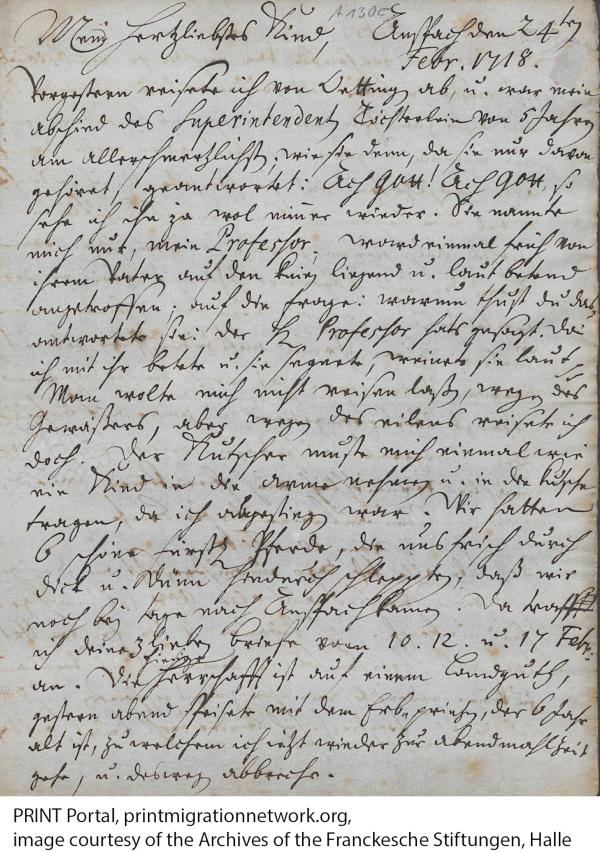 A 130c
Mein hertzliebstes Kind, Anspach den 24ten
Febr. 1718.
Vorgestern reisete ich von Oetting ab, u. war mein
abschied des Superintendent Töchterlein von 5 Jahren
am allerschmertzlichst, wie sie denn, da sie nur davon
gehöret, geantwortet: Ach Gott! Ach Gott, so
sehe ich ihn ja wol nimmer wieder. Sie nannte
mich nur, mein Professor, ward einmal früh von
ihrem Vater auf den Knien liegend u. laut betend
angetroffen. auf die frage: warum thust du das,
antwortete sie: der H. Professor hats gesagt. Da
ich mit ihr betete u. sie segnete, weinete sie laut.
Man wolte mich nicht reisen laßen, wegen des
Gewäßers, aber wegen des eilens reisete ich
doch. Der Kutscher muste mich einmal wie
ein Kind in die arme nehmen u. in die Kutsche
tragen, da ich abgestiegen war. Wir hatten
6 schöne fürstl. Pferde, die uns frisch durch
dick u. dünn hindurch schleppten, daß wir
noch bey tage nach Anspach kamen. Da traff
ich deine 3 lieben briefe vom 10. 12. u. 17 Febr.
an. Die hiesige Herrschafft ist auf einem Landguth,
gestern abend speisete mit dem Erb-printzen, der 6 Jahr
alt ist, zu welchem ich jetzt wieder zur abendmahlzeit
gehe, u. deswegen abbreche.
PRINT Portal, printmigrationnetwork.org,
image courtesy of the Archives of the Franckesche Stiftungen, Halle